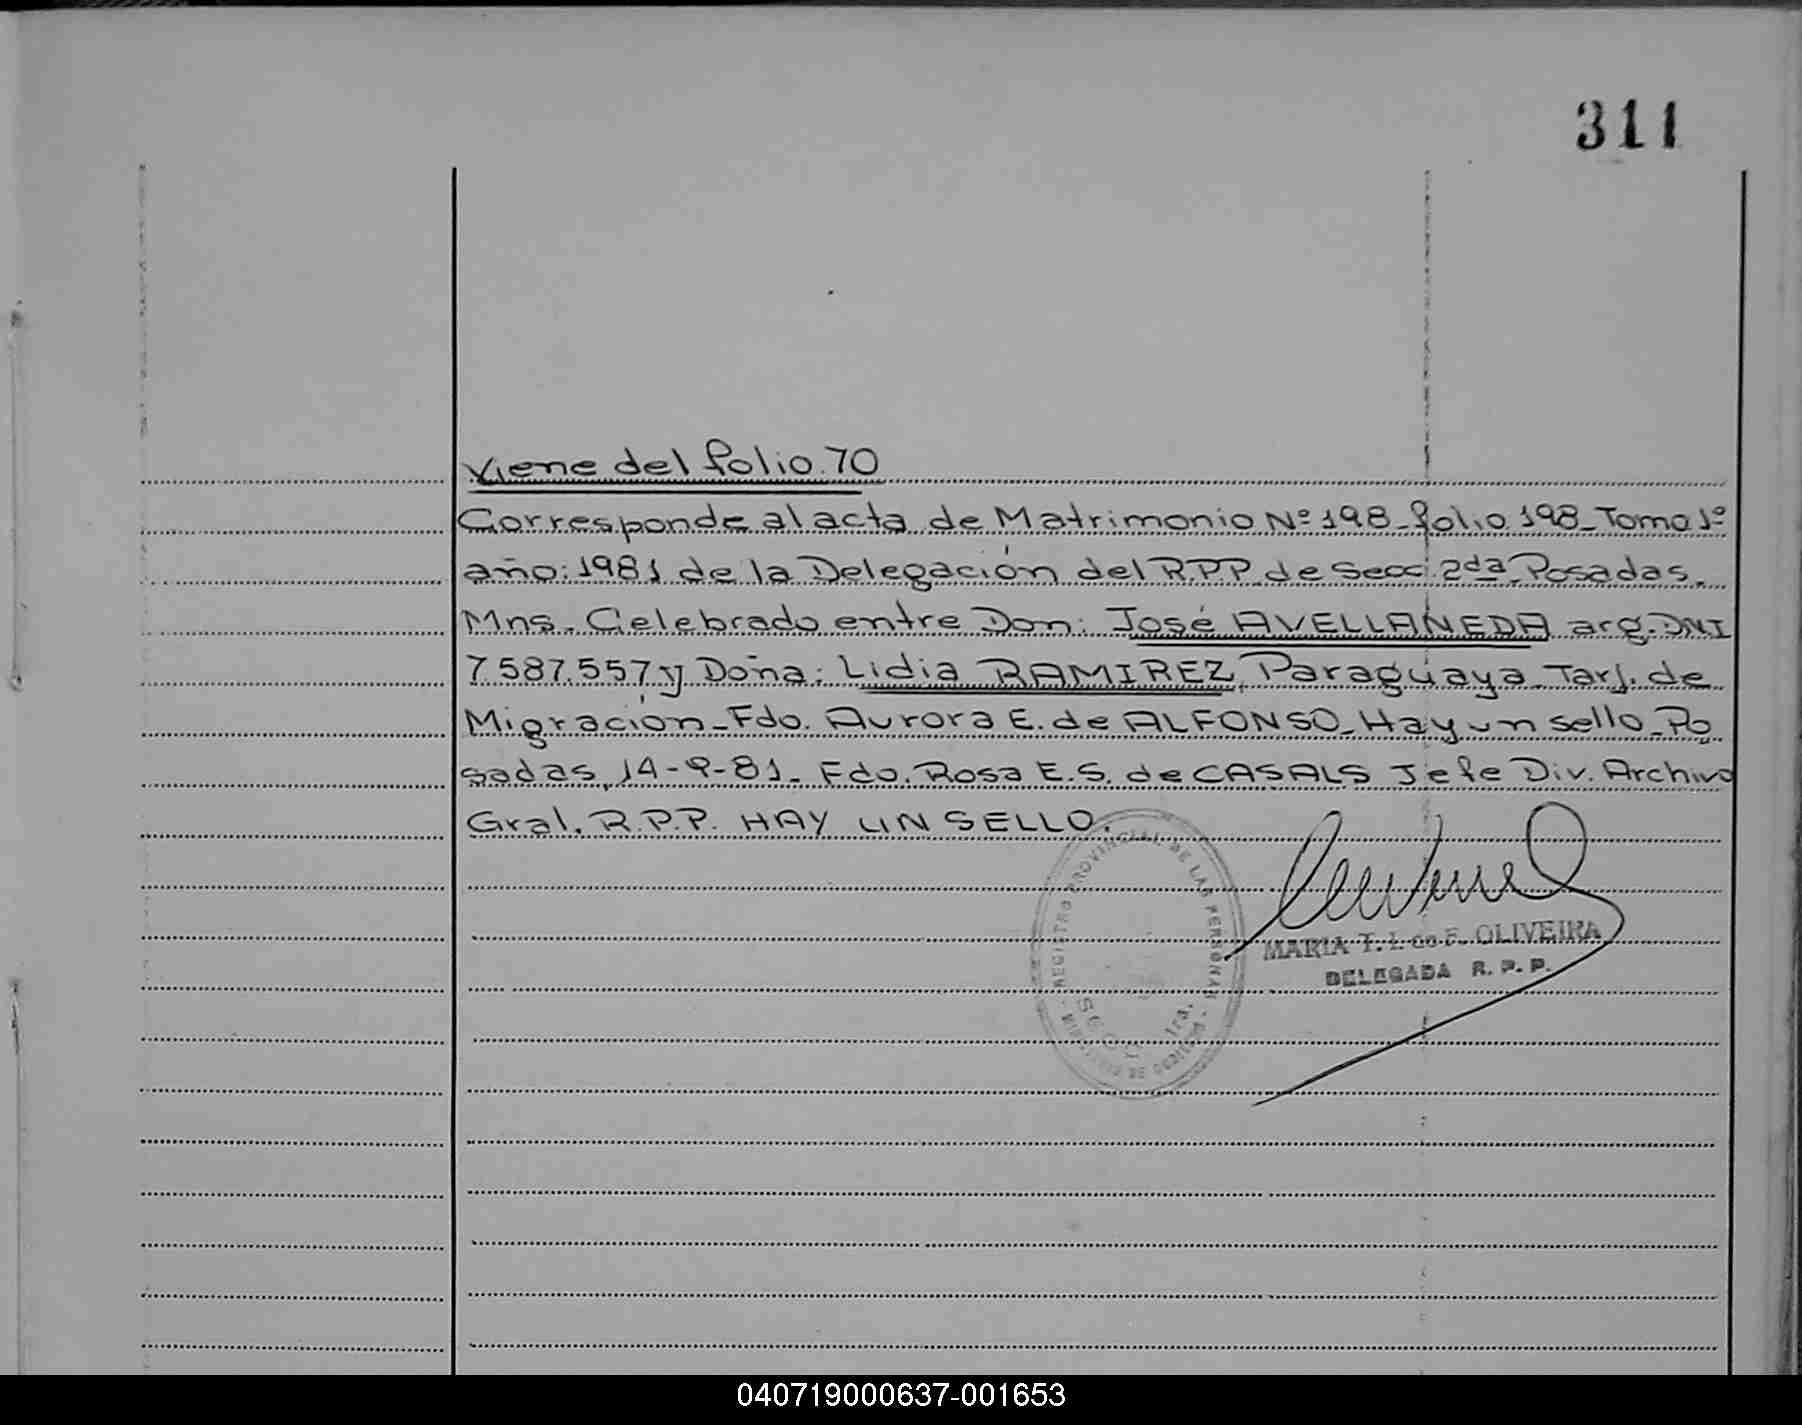 311
Viene del folio 70
Corresponde al acta de Matrimonio Nº 198 - folio 198 - Tomo 1º
año: 1981 de la Delegación del R.P.P. de Secc. 2da. Posadas.
Mns. Celebrado entre Don: José AVELLANEDA arg. DNI
7587.557 y Doña: Lidia RAMIREZ, Paraguaya - Tarj. de
Migración - Fdo. Aurora E. de ALFONSO - Hay un sello - Po
sadas, 14-9-81 - Fdo. Rosa E.S. de CASALS Jefe Div. Archivo
Gral. R.P.P. HAY UN SELLO.
REGISTRO PROVINCIAL DE LAS PERSONAS
MARIA T. I. de F. OLIVEIRA
DELEGADA R. P. P.
Secc. 1ra.
MINISTERIO DE GOBIERNO
040719000637-001653